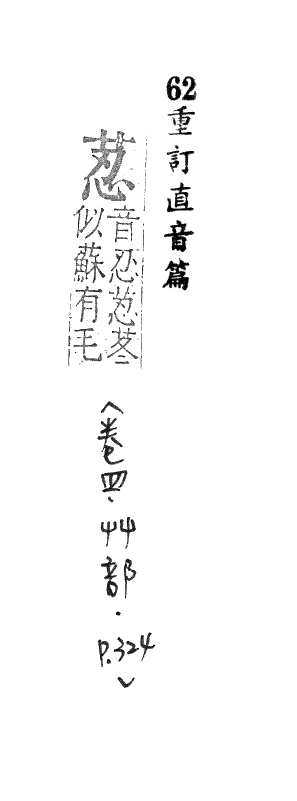 62重訂直音篇
荵
音忍荵苳
似蘇有毛
〈卷四.艸部.P.324〉